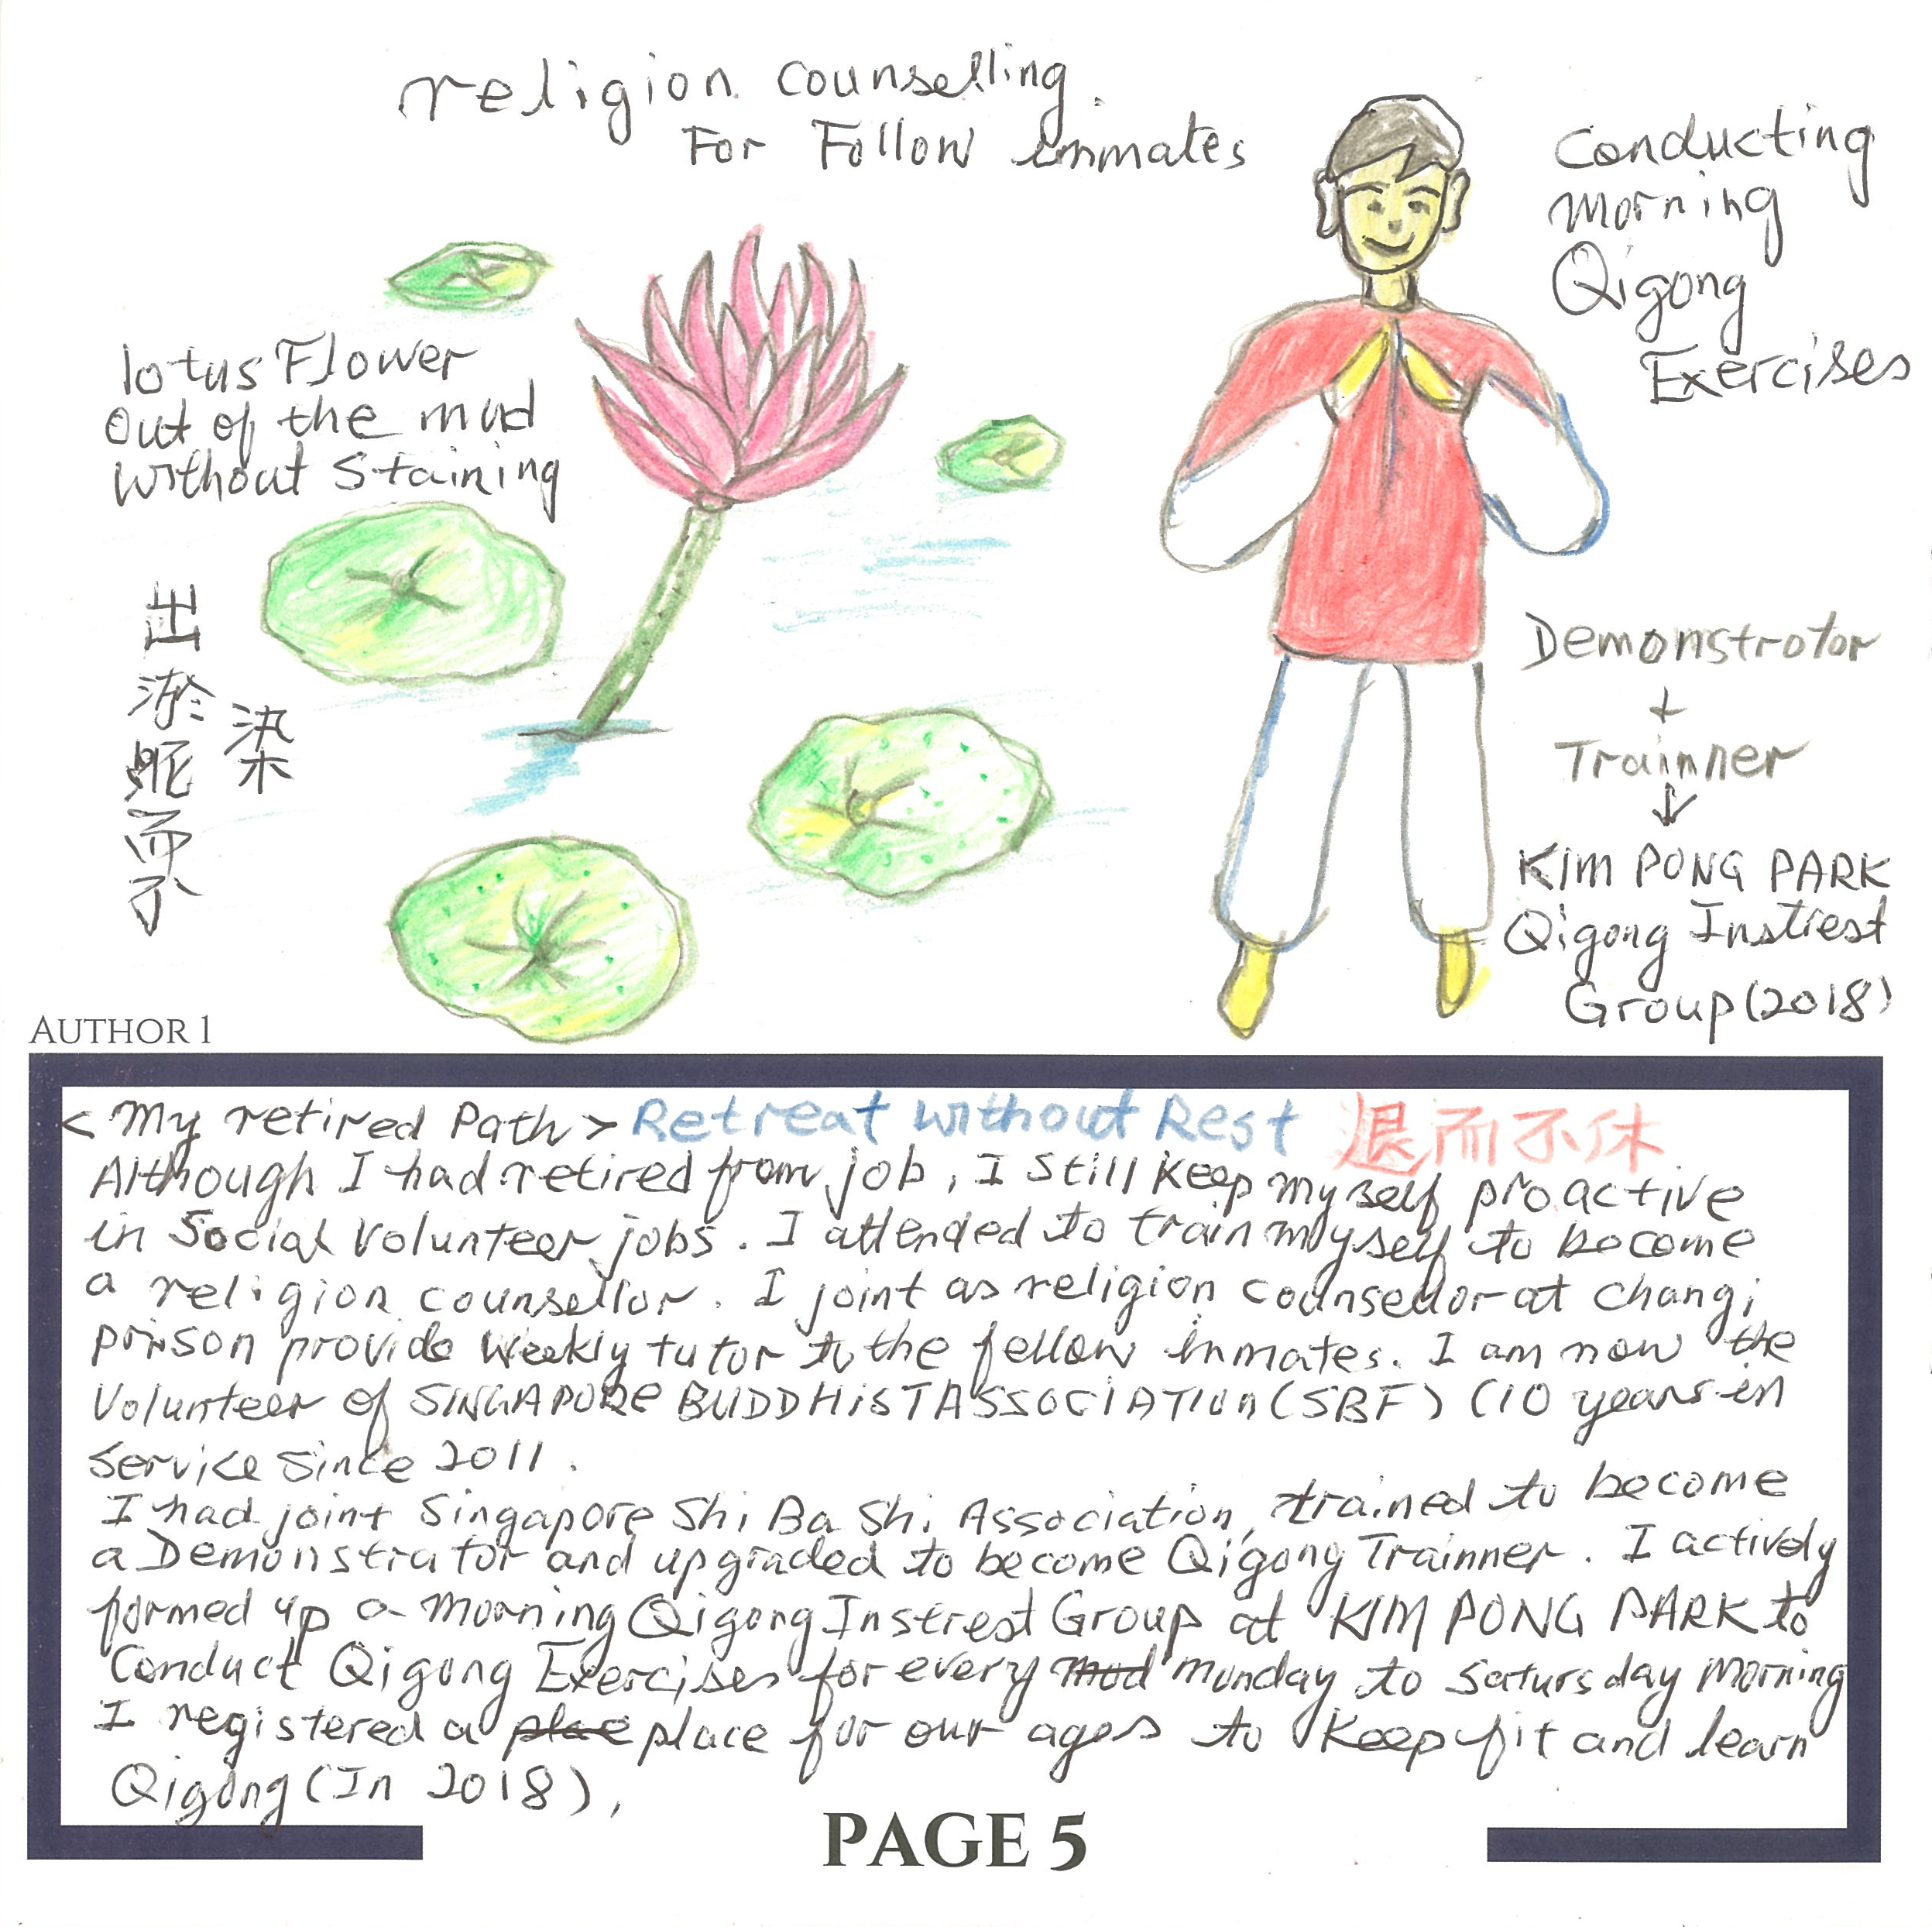 religion counselling
For Follow inmates
Conducting
Morning
Qigong
Exercises
lotus Flower
Out of the mud
Without Staining
出淤泥而不
染
Demonstrotor
+
Trainner
↓
KIM PONG PARK
Qigong Instrest
Group (2018)
AUTHOR 1
<My retired Path> Retreat Without Rest 退而不休
Although I had retired from job, I still keep myself proactive
in Social Volunteer jobs. I attended to train myself to become
a religion counsellor. I joint as religion counsellor at changi
prison provide weekly tutor to the fellow inmates. I am now the
Volunteer of SINGAPORE BUDDHIST ASSOCIATION (SBF) (10 years in
Service Since 2011.
I had joint Singapore Shi Ba Shi Association, trained to become
a Demonstrator and upgraded to become Qigong Trainner. I actively
formed up a Morning Qigong Instrest Group at KIM PONG PARK to
Conduct Qigong Exercises for every mod monday to Satursday Morning
I registered a plae place for our ages to Keep fit and learn
Qigong (In 2018),
PAGE 5